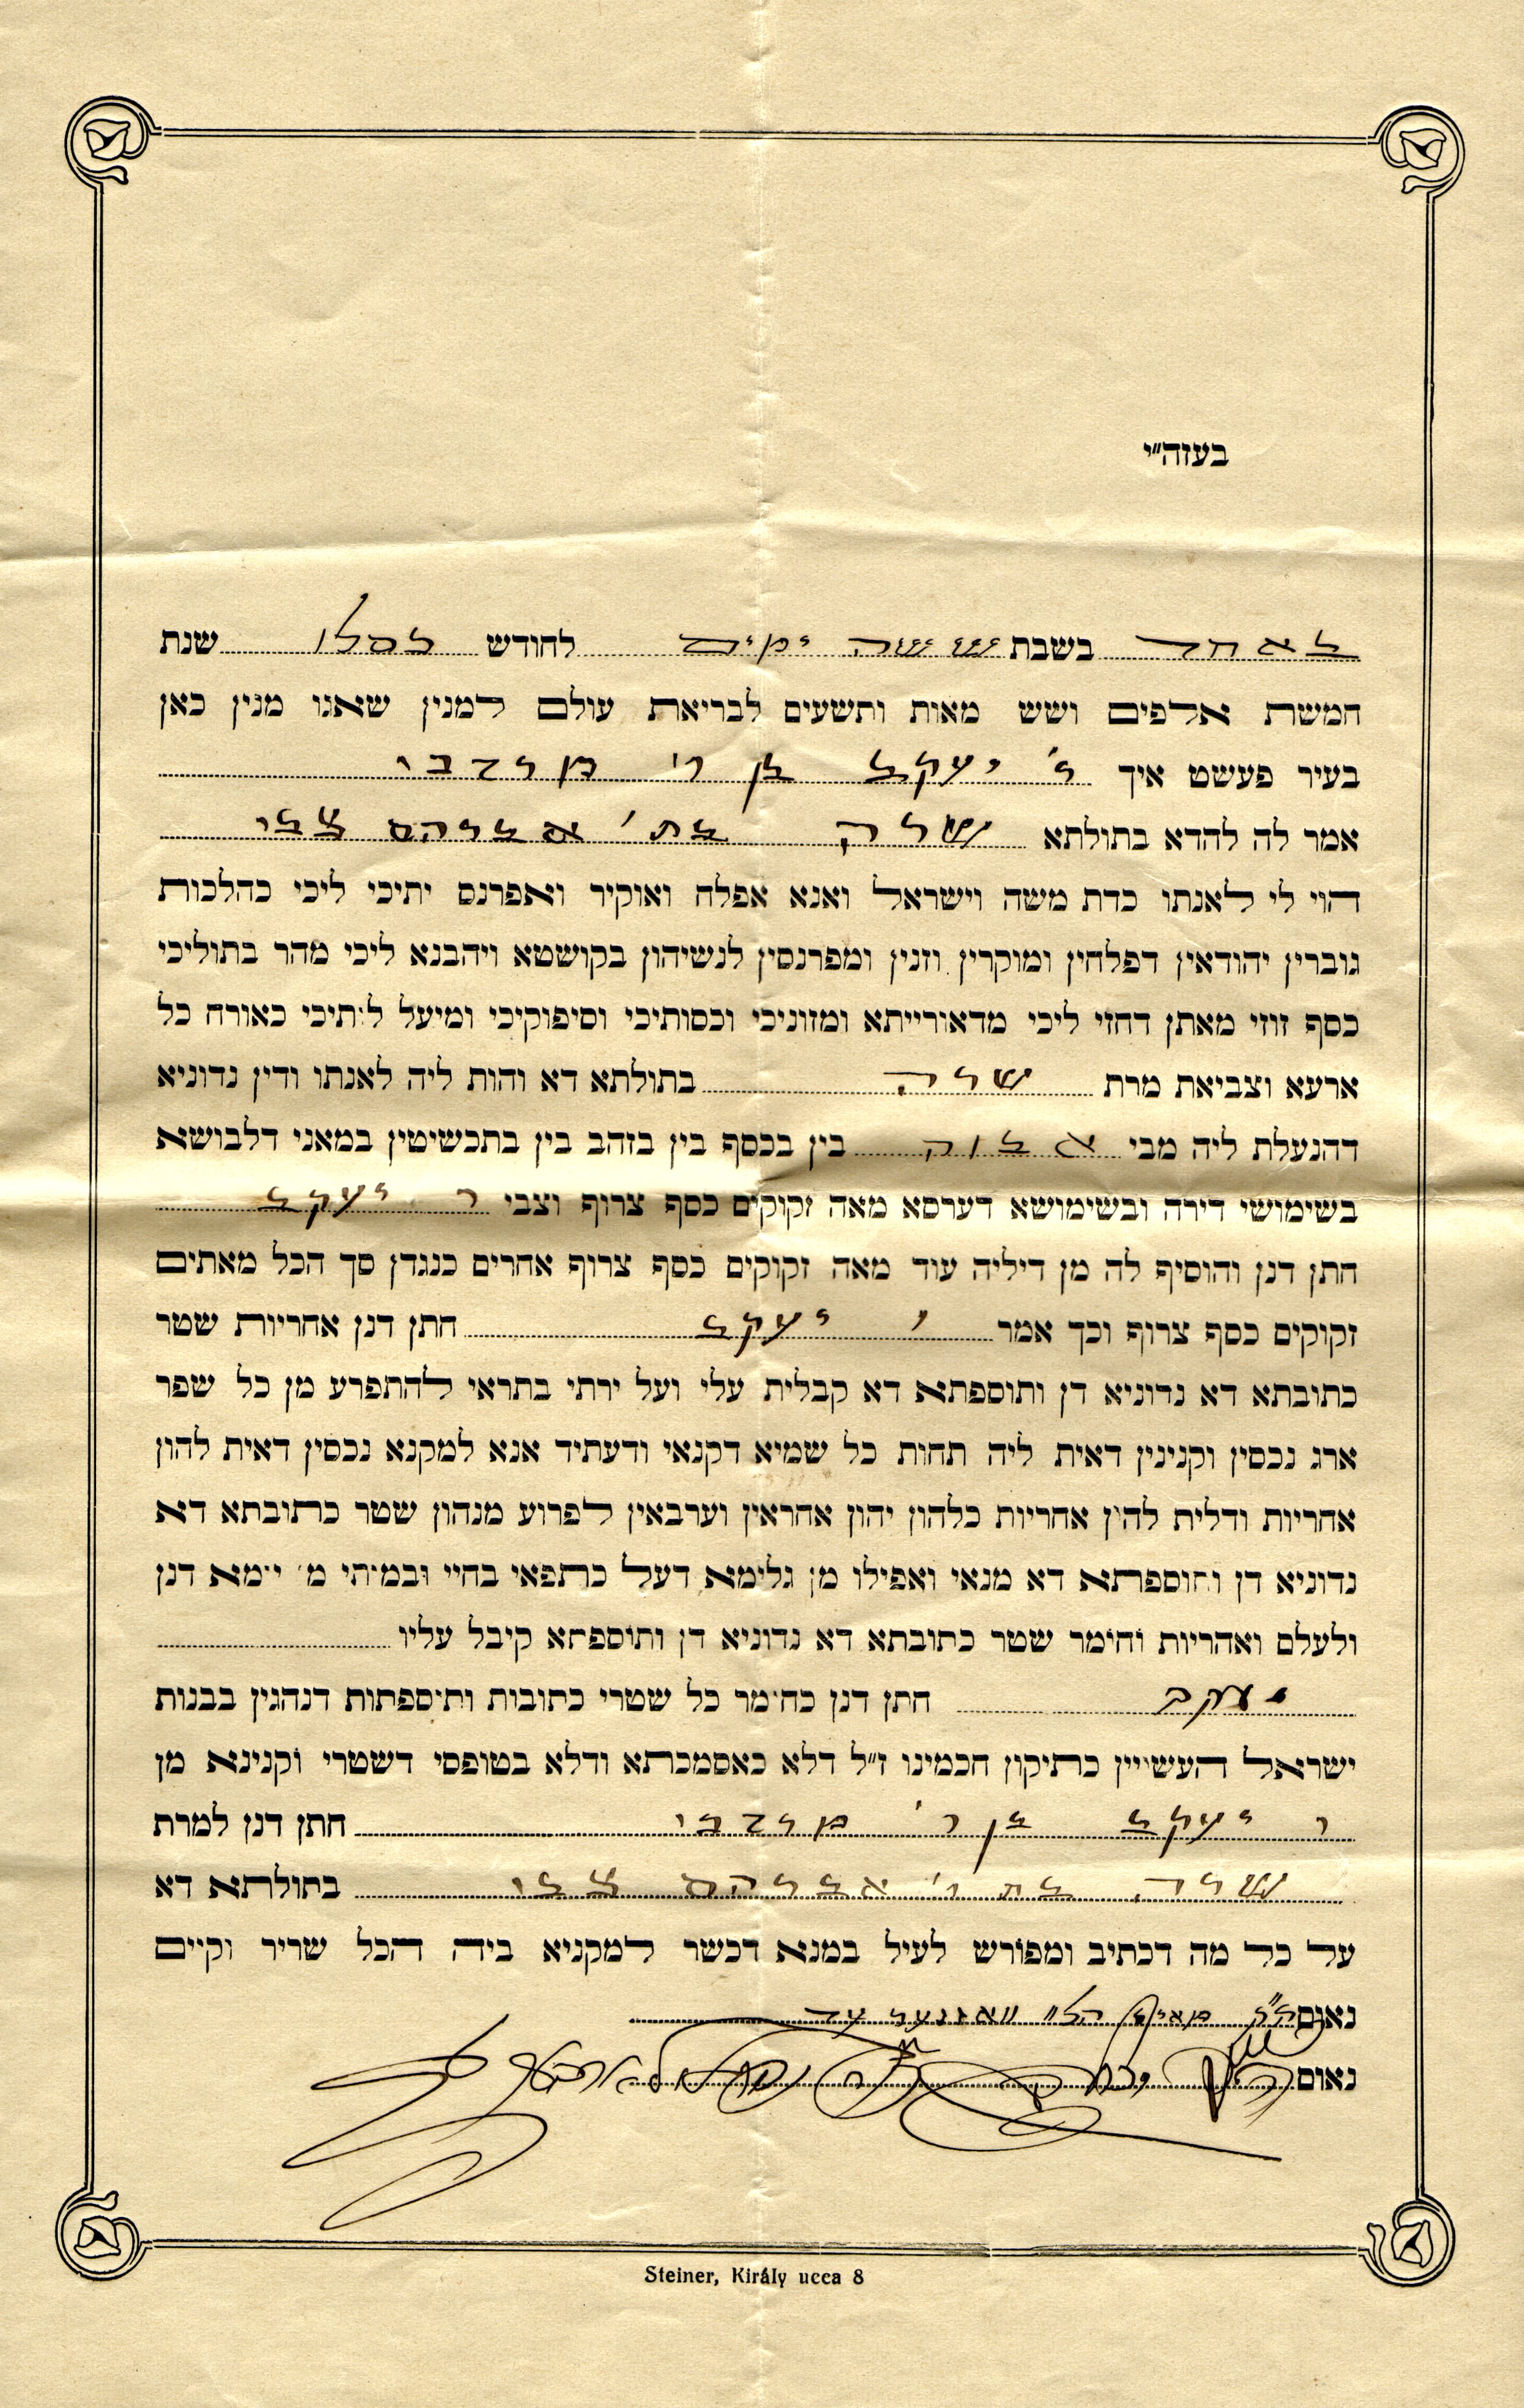 בעזה״י
באחד בשבת ששה ימים לחודש כסלו שנת
חמשת אלפים ושש מאות ותשעים לבריאת עולם למנין שאנו מנין כאן
בעיר פעשט איך ר׳ יעקב בן ר׳ מרדכי
אמר לה להדא בתולתא שרה בת ׳ אברהם צבי
הוי לי לאנתו כדת משה וישראל ואנא אפלח ואוקיר ואפרנס יתיכי ליכי כהלכות
גוברין יהודאין דפלחין ומוקרין וזנין ומפרנסין לנשיהון בקושטא ויהבנא ליכי מהר בתוליכי
כסף זוזי מאתן דחזי ליכי מדאורייתא ומזוניכי וכסותיכי וסיפוקיכי ומיעל לותיכי כאורח כל
ארעא וצביאת מרת שרה בתולתא דא והות ליה לאנתו ודין נדוניא
דהנעלת ליה מבי אבוה בין בכסף בין בזהב בין בתכשיטין במאני דלבושא
בשימושי דירה ובשימושא דערסא מאה זקוקים כסף צרוף וצבי ר יעקב
חתן דנן והוסיף לה מן דיליה עוד מאה זקוקים כסף צרוף אחרים כנגדן סך הכל מאתים
זקוקים כסף צרוף וכך אמר ר יעקב חתן דנן אחריות שטר
כתובתא דא נדוניא דן ותוספתא דא קבלית עלי ועל ירתי בתראי להתפרע מן כל שפר
ארג נכסין וקנינין דאית ליה תחות כל שמיא דקנאי ודעתיד אנא למקנא נכסין דאית להון
אחריות ודלית להון אחריות כלהון יהון אחראין וערבאין לפרוע מנהון שטר כתובתא דא
נדוניא דן ותוספתא דא מנאי ואפילו מן גלימא דעל כתפאי בחיי ובמותי מ יומא דנן
ולעלם ואחריות וחומר שטר כתובתא דא נדוניא דן ותוספתא קיבל עליו
יעקב חתן דנן כחומר כל שטרי כתובות ותוספתות דנהגין בבנות
ישראל העשויין כתיקון חכמינו ז״ל דלא כאסמכתא ודלא בטופסי דשטרי וקנינא מן
ר יעקב בן ר׳ מרדכי חתן דנן למרת
שרה בת ר׳ אברהם צבי בתולתא דא
על כל מה דכתיב ומפורש לעיל במנא דכשר למקניא ביה הכל שריר וקיים
נאום עד
נאום
Steiner, Király ucca 8